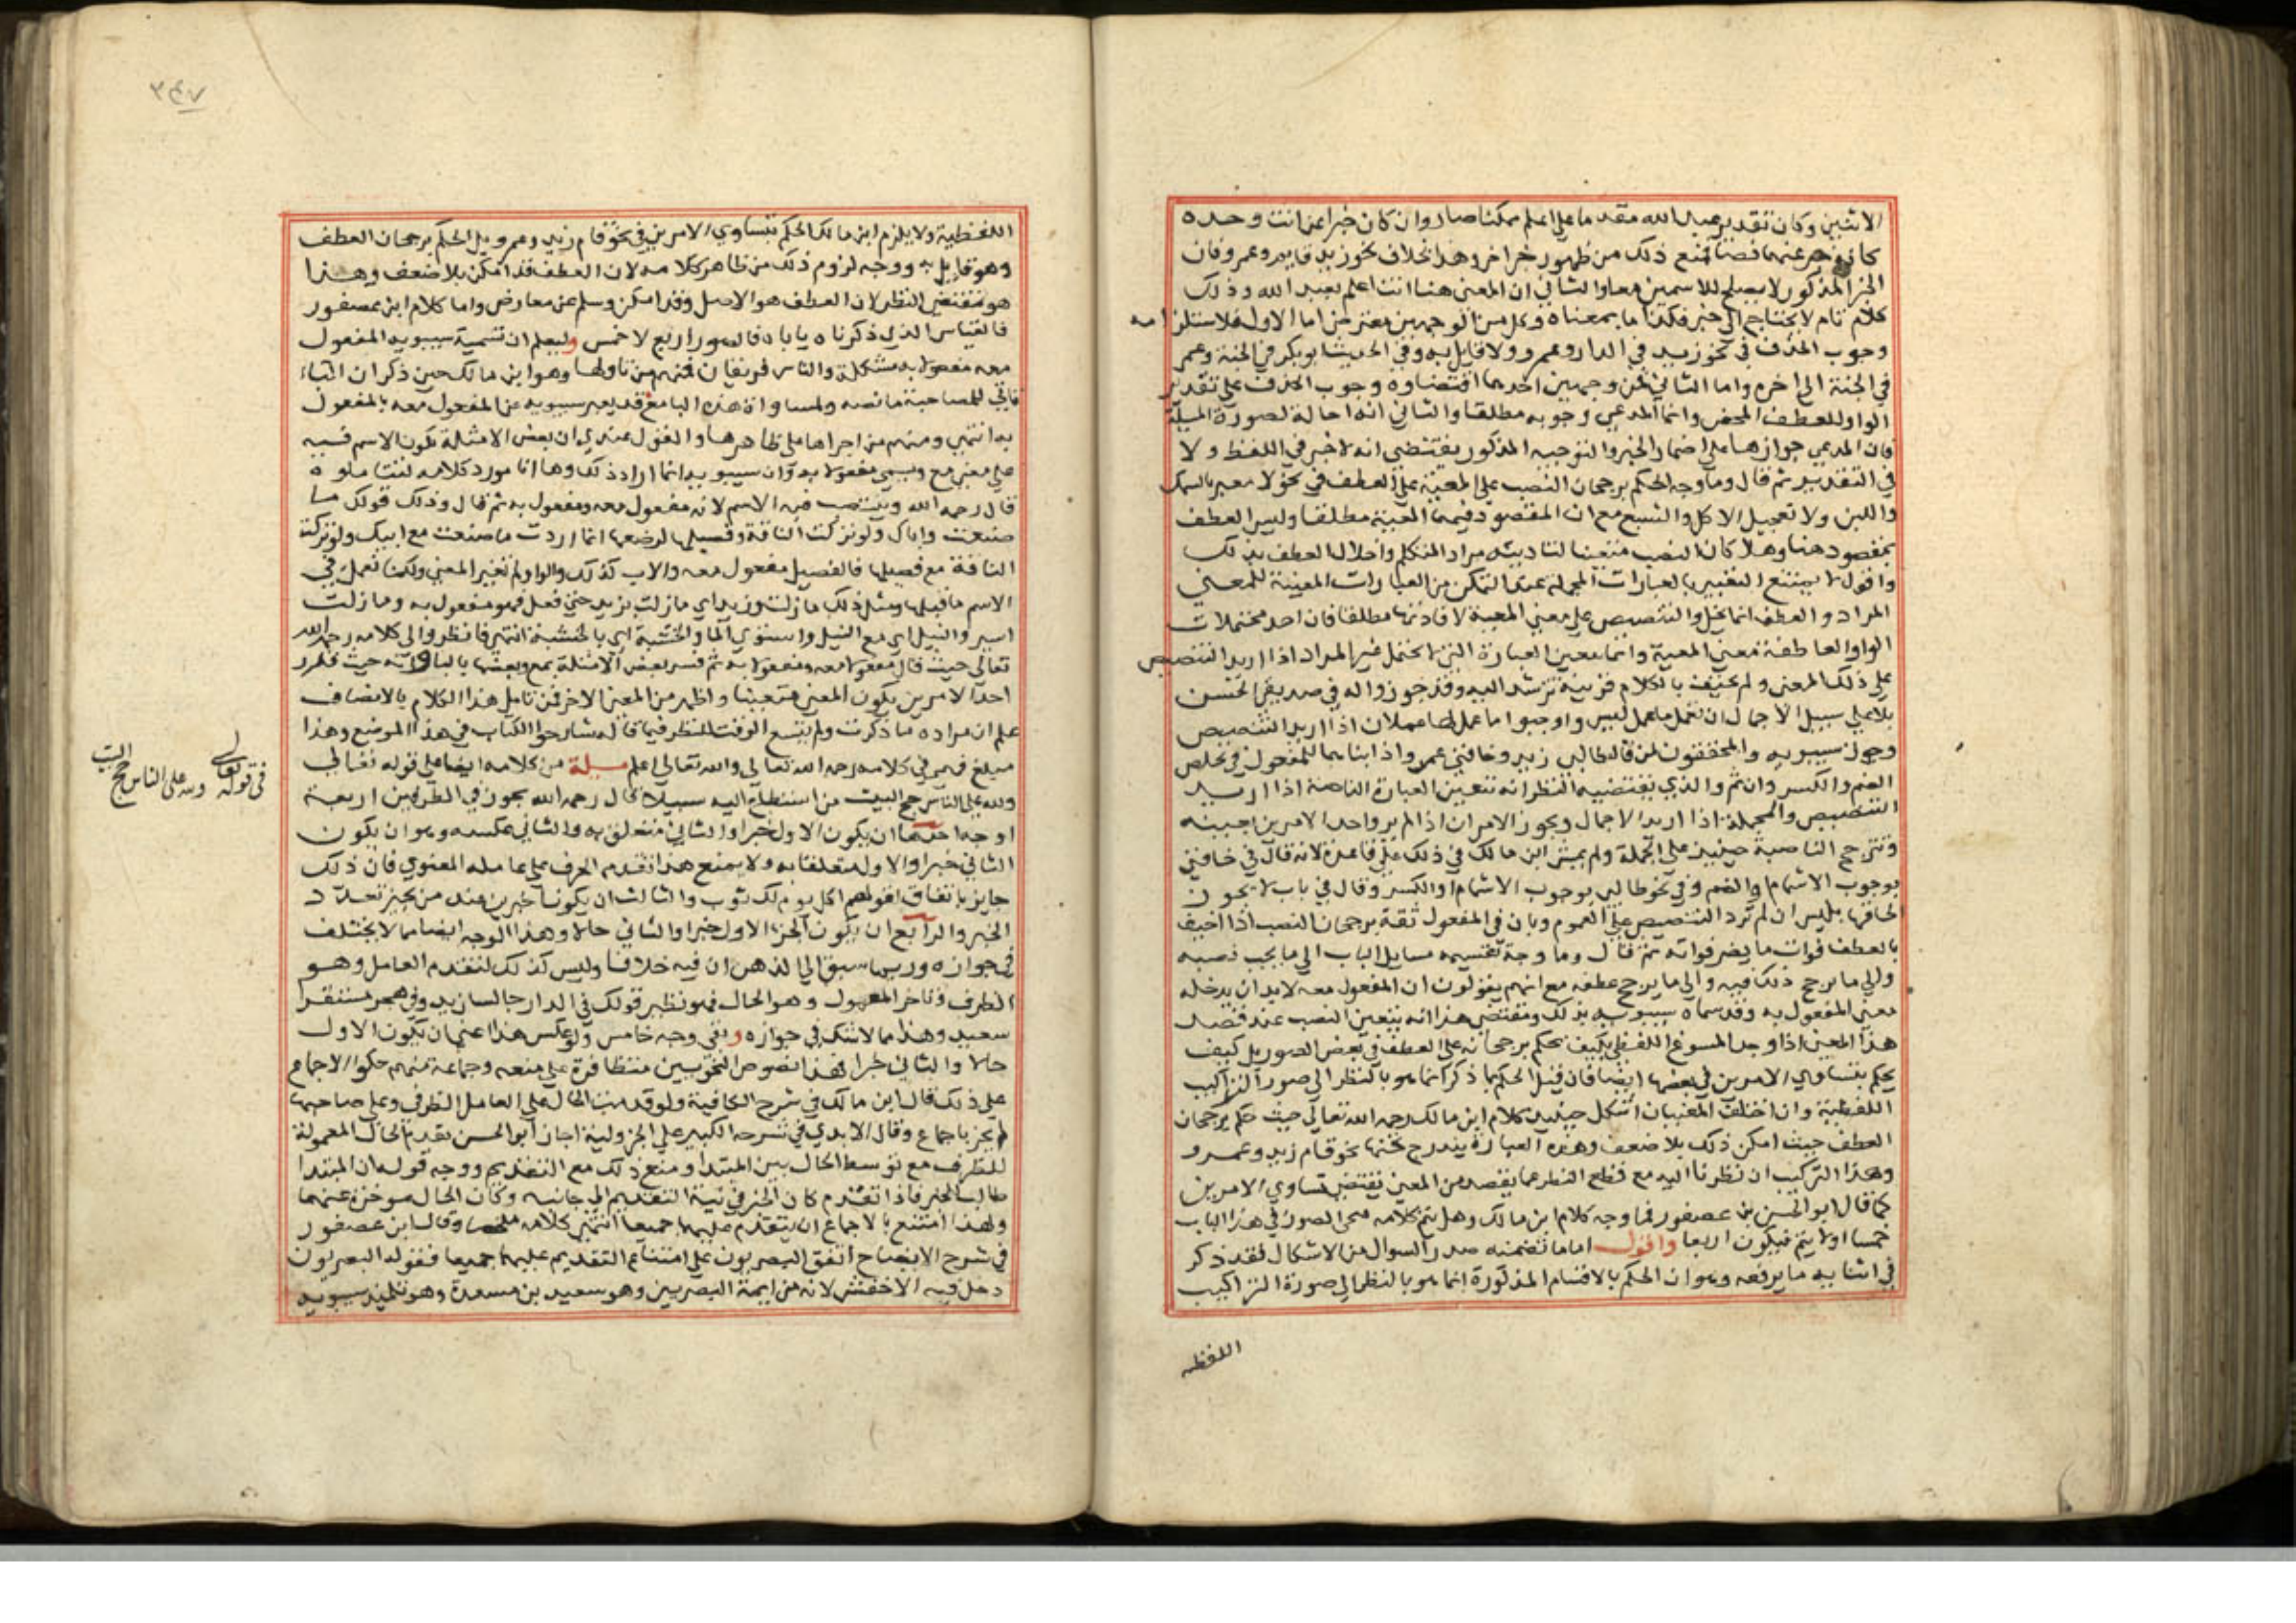 الاثنين وكان تقدير عبد الله مقدما على اعلم ممكنا صار وان كان خبرا عن انت وحده
كانه خبر عنهما فصنا تمنع ذلك من ظهور خبر اخر وهذا بخلاف نحو زيد قايم وعمرو فان
الخبر المذكور لا يصلح للاسمين معا والثاني ان المعنى هنا انت اعلم بعبد الله وذلك
كلام تام لا يحتاج الى خبر فكذا ما بمعناه وكل من الوجهين معترض اما الاول فلاستلزامه
وجوب الحذف في نحو زيد في الدار وعمرو ولا قايل به وفي الحديث ابو بكر في الجنة وعمر
في الجنة الى اخره واما الثاني فمن وجهين احدهما اقتضاوه وجوب الحذف على تقدير
الواو للعطف المحض وانما المدعى وجوبه مطلقا والثاني انه احالة لصورة المسيلة
فان المدعى جوازها على اضمار الخبر والتوجيه المذكور يقتضى انه لا خبر في اللفظ ولا
في التقدير ثم قال وما وجه الحكم برجحان النصب على المعية على العطف في نحو لا تغتر بالسمك
واللبن ولا تعجل الاكل والشبع مع ان المقصود فيهما المعية مطلقا وليس العطف
بمقصود هنا وهلا كان النصب متعينا لتاديته مراد المتكلم واخلال العطف بذلك
واقول لا يمتنع التعبير بالعبارات المجملة عند التمكن من العبارات المعينة للمعنى
المراد والعطف انما يخل والتنصيص على معنى المعية لا فادتها مطلقا فان احد محتملات
الواو العاطفة معنى المعية وانما تعين العبارة التي لا تحتمل غير المراد اذا اريد التنصيص
على ذلك المعنى ولم تحتف بالكلام قرينة ترشد اليه وقد جوزوا له في صديقي الحسن
بلا على سبيل الاجمال ان تعمل ما عمل ليس واوجبوا اعمالها عمل ان اذا اريد التنصيص
وجوز سيبويه والمحققون لمن قال طالبى زيد وخافني عمرو اذا بناهما للمفعول في مخلص
الضم والكسر وان تم والذي يقتضيه النظر انه تتعين العبارة الناصة اذا اريد
التنصيص والمجملة اذا اريد الاجمال ويجوز الامران اذا لم يرد واحد الامرين بعينه
وتترجح الناصبة حينيذ على الجملة ولم يمش ابن مالك في ذلك على قاعدة لانه قال في خافني
بوجوب الاشمام والضم وفي نحو طالبى بوجوب الاشمام او الكسر وقال في باب لا يجوز
الحاقها بليس ان لم ترد التنصيص على العموم وبان في المفعول ثقة برجحان النصب اذا اخيف
بالعطف فوات ما يضر فواته ثم قال وما وجه تقسيمه مسايل الباب الى ما يجب نصبه
والى ما يرجح ذلك فيه والى ما يرجح عطفه مع انهم يقولون ان المفعول معه لا بد ان يدخله
معنى المفعول به وقد سماه سيبويه بذلك ومقتضى هذا انه يتعين النصب عند قصد
هذا المعنى اذا وجد المسوغ اللفظي فكيف نحكم برجحانه على العطف في بعض الصور بل كيف
يحكم بتساوي الامرين في بعضها ايضا فان قيل الحكم بما ذكر انما هو بالنظر الى صور التراكيب
اللفظية وان اختلف المعنيان اشكل حينيذ كلام ابن مالك رحمه الله تعالى حيث حكم برجحان
العطف حيث امكن ذلك بلا ضعف وهذه العبارة يندرج تحتها نحو قام زيد وعمرو
وهذا التركيب ان نظرنا اليه مع قطع النظر عما يقصد من المعنى يقتضى تساوي الامرين
كما قال ابو الحسن بن عصفور فما وجه كلام ابن مالك وهل يتم كلامه فتحى الصور في هذا الباب
خمسا اولا يتم فيكون اربعا واقول اما ما تضمنه صدر السوال من الاشكال فقد ذكر
في اثنايه ما يرفعه وهو ان الحكم بالاقسام المذكورة انما هو بالنظر الى صورة التراكيب
اللفظيه
٣٤٧
اللفظية ولا يلزم ابن مالك الحكم بتساوي الامرين في نحو قام زيد وعمرو بل الحكم برجحان العطف
وهو قايل به ووجه لزوم ذلك من ظاهر كلامه لان العطف قد امكن بلا ضعف وهذا
هو مقتضى النظر لان العطف هو الاصل وقد امكن وسلم عن معارض واما كلام ابن عصفور
فالقياس الذي ذكرناه ياباه فالصور اربع لا خمس وليعلم ان تسمية سيبويه المفعول
معه مفعولا به مشكلة والناس فريقان فمنهم من تاولها وهو ابن مالك حين ذكر ان الباء
تاتي للمصاحبة ما نصه ولمساواة هذه البا مع قد يعبر سيبويه عن المفعول معه بالمفعول
به انتهى ومنهم من اجراها على ظاهرها والقول عندي ان بعض الامثلة يكون الاسم فيه
على معنى مع ويسمى مفعولا به وان سيبويه انما اراد ذلك وها انا مورد كلامه لتتاملوه
قال رحمه الله وينتصب فيه الاسم لانه مفعول معه ومفعول به ثم قال وذلك قولك ما
صنعت واباك ولو تركت الناقة وفصيلها لرضعها انما اردت ما صنعت مع ابيك ولو تركت
الناقة مع فصيلها فالفصيل مفعول معه والاب كذلك والواو لم تغير المعنى ولكنها تعمل في
الاسم ما قبلها ومثل ذلك ما زلت وزيدا اي ما زلت بزيد حتى فعل فهو مفعول به وما زلت
اسير والنيل اي مع النيل واستوى الما والخشبة اي بالخشبة انتهى فانظروا الى كلامه رحمه الله
تعالى حيث قال مفعولا معه ومفعولا به ثم فسر بعض الامثلة بمع وبعضها بالبا ولانه حيث قدر
احد الامرين يكون المعنى متعينا واظهر من المعنى الاخر فمن تامل هذا الكلام بالانصاف
علم ان مراده ما ذكرت ولم يتسع الوقت للنظر فيما قاله شارحوا الكتاب في هذا الموضع وهذا
مبلغ فهمي في كلامه رحمه الله تعالى والله تعالى اعلم مسيلة من كلامه ايضا على قوله تعالى
ولله على الناس حج البيت من استطاع اليه سبيلا قال رحمه الله يجوز في الظرفين اربعة
اوجه احدها ان يكون الاول خبرا والثاني متعلق به والثاني عكسه وهو ان يكون
الثاني خبرا والاول متعلقا به ولا يمنع هذا تقدم الحرف على عامله المعنوي فان ذلك
جايز باتفاق لقولهم اكل يوم لك ثوب والثالث ان يكونا خبرين عند من يجيز تعدد
الخبر والرابع ان يكون الجزء الاول خبرا والثاني حالا وهذا الوجه ايضا مما لا يختلف
في جوازه وربما سبق الى الذهن ان فيه خلافا وليس كذلك لتقدم العامل وهو
الظرف وتاخر المعمول وهو الحال فهو نظير قولك في الدار جالسا زيد وفي هجر مستقرا
سعيد وهذا مما لا شك في جوازه وبقى وجه خامس وهو عكس هذا اعنى ان يكون الاول
حالا والثاني خبرا فهذا نصوص النحويين متظافرة على منعه وجماعة منهم حكوا الاجماع
على ذلك قال ابن مالك في شرح الكافية ولو قدمت الحال على العامل الظرف وعلى صاحبها
لم يجز باجماع وقال الابدي في شرحه الكبير على الجزولية اجاز ابو الحسن تقديم الحال المعمولة
للظرف مع توسط الحال بين المبتدا ومنع ذلك مع التقديم ووجه قوله ان المبتدا
طالب للخبر فاذا تقدم كان الخبر في نية التقديم الى جانبه وكان الحال موخرة عنهما
ولهذا امتنع بالاجماع ان يتقدم عليهما جميعا انتهى كلامه ملخصا وقال ابن عصفور
في شرح الايضاح اتفق البصريون على امتناع التقديم عليهما جميعا فقوله البصريون
دخل فيه الاخفش لانه من ايمة البصريين وهو سعيد بن مسعدة وهو تلميذ سيبويه
في قوله تعالى
ولله على الناس حج البيت